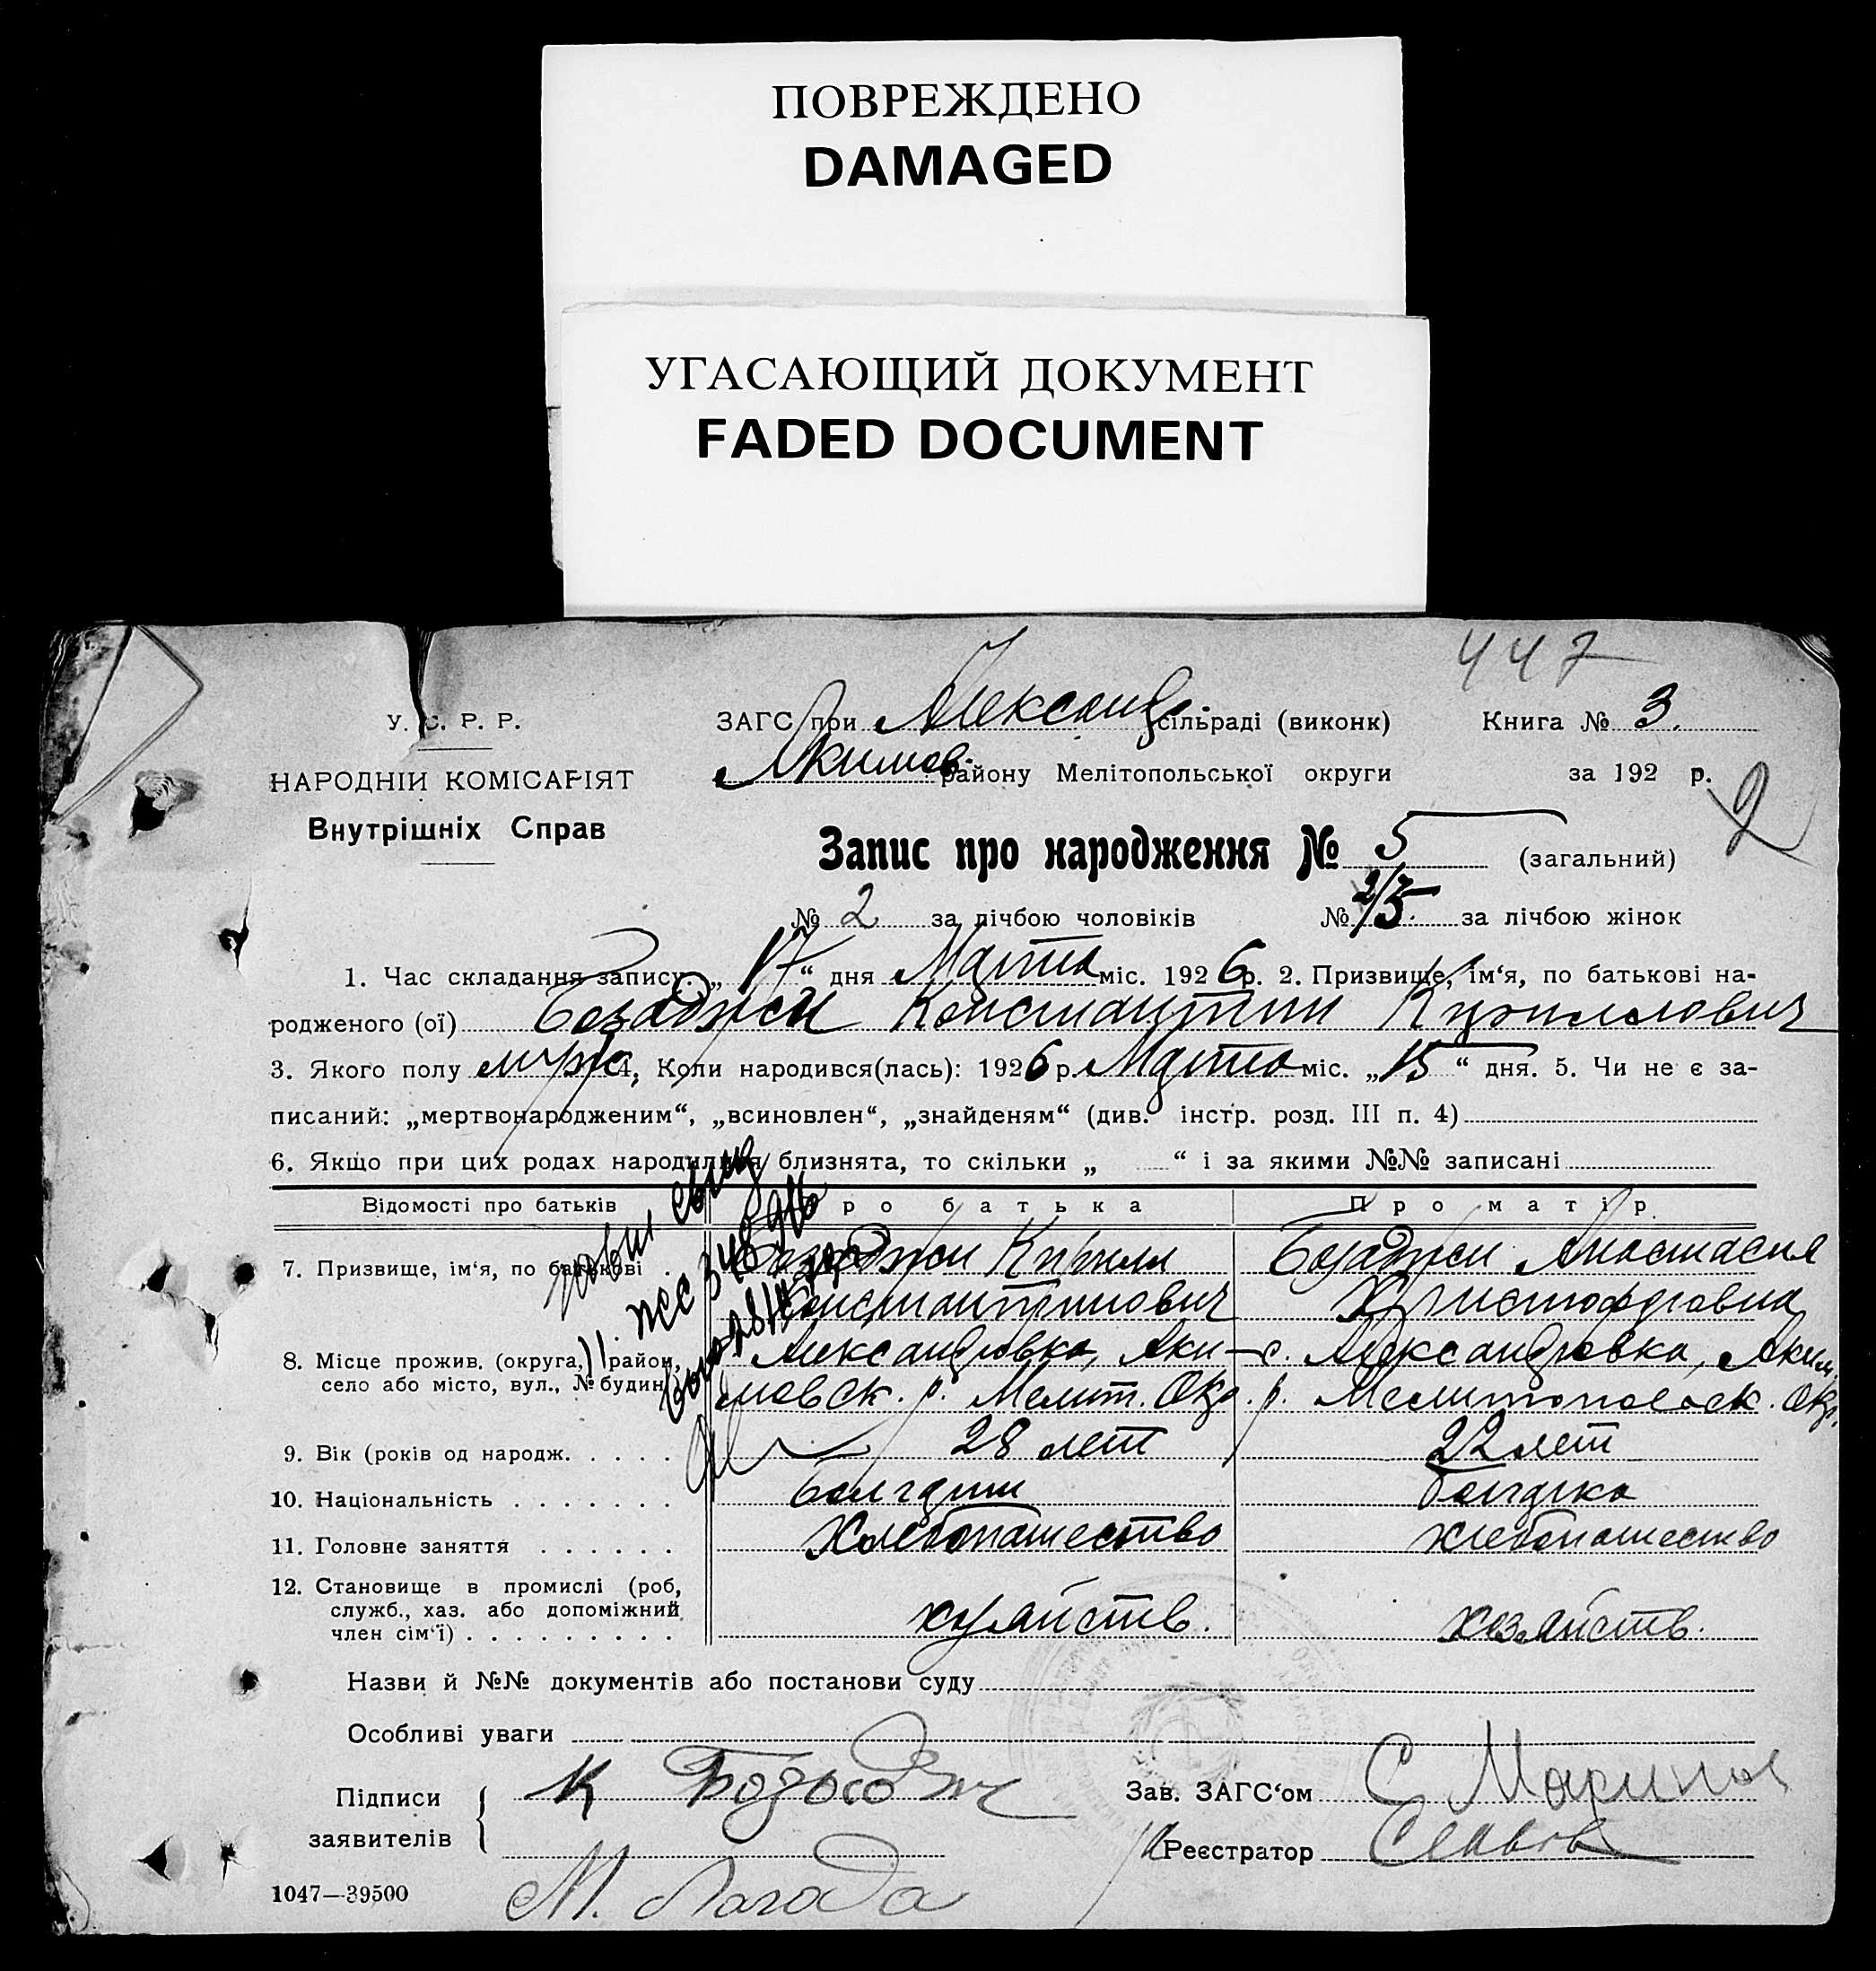 ПОВРЕЖДЕНО
DAMAGED
УГАСАЮЩИЙ ДОКУМЕНТ
FADED DOCUMENT
447
У. С. Р. Р.
ЗАГС при Александр. сільраді (виконк)
Книга № 3.
НАРОДНІЙ КОМІСАРІЯТ
Акимов. району Мелітопольської округи
за 192 р.
2
Внутрішніх Справ
Запис про народження № 5 (загальний)
№ 2 за лічбою чоловіків № 2/3. за лічбою жінок
1. Час складання запису: „17“ дня Марта міс. 1926 р. 2. Призвище, ім‘я, по батькові на-
родженого (ої) Бозаджи Константин Кириллович
3. Якого полу муж 4. Коли народився(лась): 1926 р. Марта міс. „15“ дня. 5. Чи не є за-
писаний: „мертвонародженим“, „всиновлен“, „знайденям“ (див. інстр. розд. III п. 4)
6. Якщо при цих родах народилися близнята, то скільки „ “ і за якими №№ записані
Відомості про батьків Про батька Про матір
7. Призвище, ім‘я, по батькові . Бозаджи Кирилл Бозаджи Анастасия
Константинович Христофоровна
8. Місце прожив. (округа, район, Александровка, Аки- с. Александровка, Аким.
село або місто, вул., № будин. мовск. р. Мелит. Окр. р. Мелитопольск. Окр.
9. Вік (років од народж. . . . . 28 лет 22 лет
10. Національність . . . . . . . болгарин болгарка
11. Головне заняття . . . . . . Хлебопашество хлебопашество
12. Становище в промислі (роб,
служб., хаз. або допоміжний
член сім‘ї) . . . . . . . . . хозяйств. хозяйств.
Назви й №№ документів або постанови суду
Особливі уваги
Підписи
заявителів
К
Зав. ЗАГС‘ом С Маринов
Реєстратор Славов
1047—39500
М.